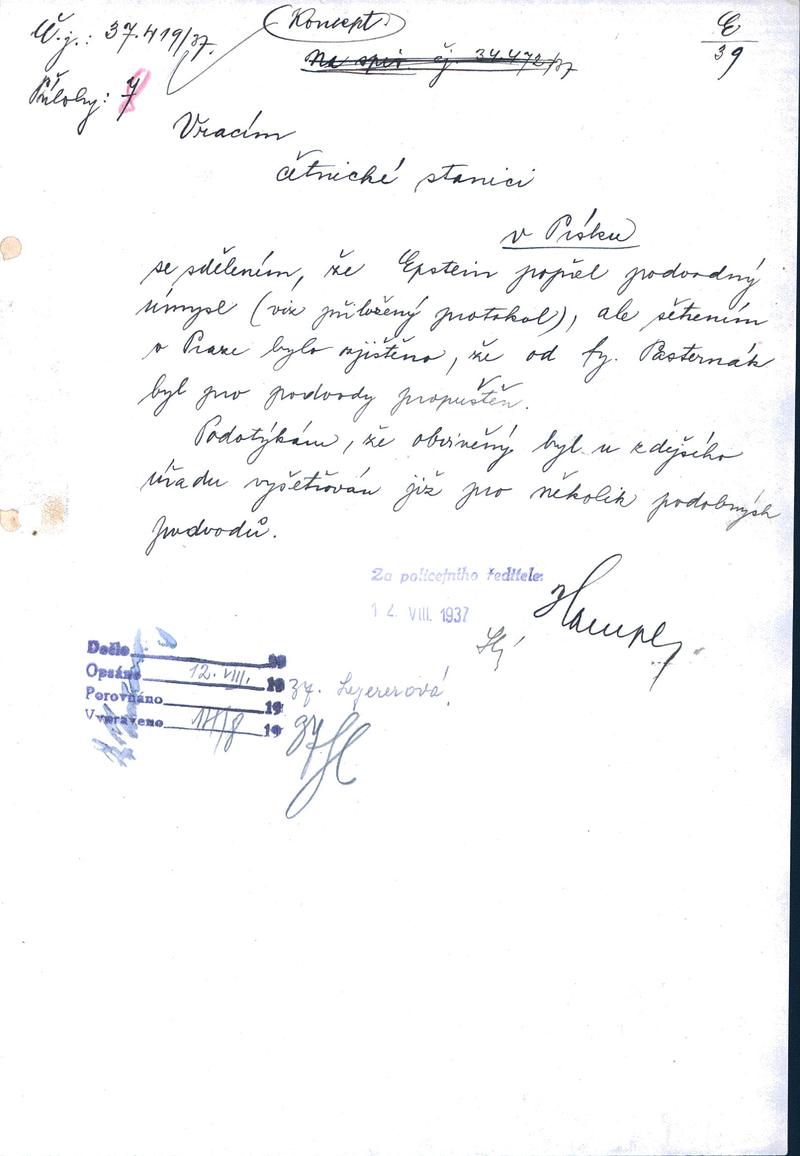 Č.j.: 37.419/37.
(Koncept)
Na spis čj. 34.472/37
E
39
Přílohy: 7
Vracím
četnické stanici
v Písku
se sdělením, že Epstein popřel podvodný
úmysl (viz přiložený protokol), ale šetřením
v Praze bylo zjištěno, že od fy. Pasternák
byl pro podvody propuštěn.
Podotýkám, že obviněný byl u zdejšího
úřadu vyšetřován již pro několik podobných
podvodů.
Za policejního ředitele:
14. VIII. 1937
Došlo 19
Opsáno 12. VIII. 19
Porovnáno 19
Vypraveno 14/8 19